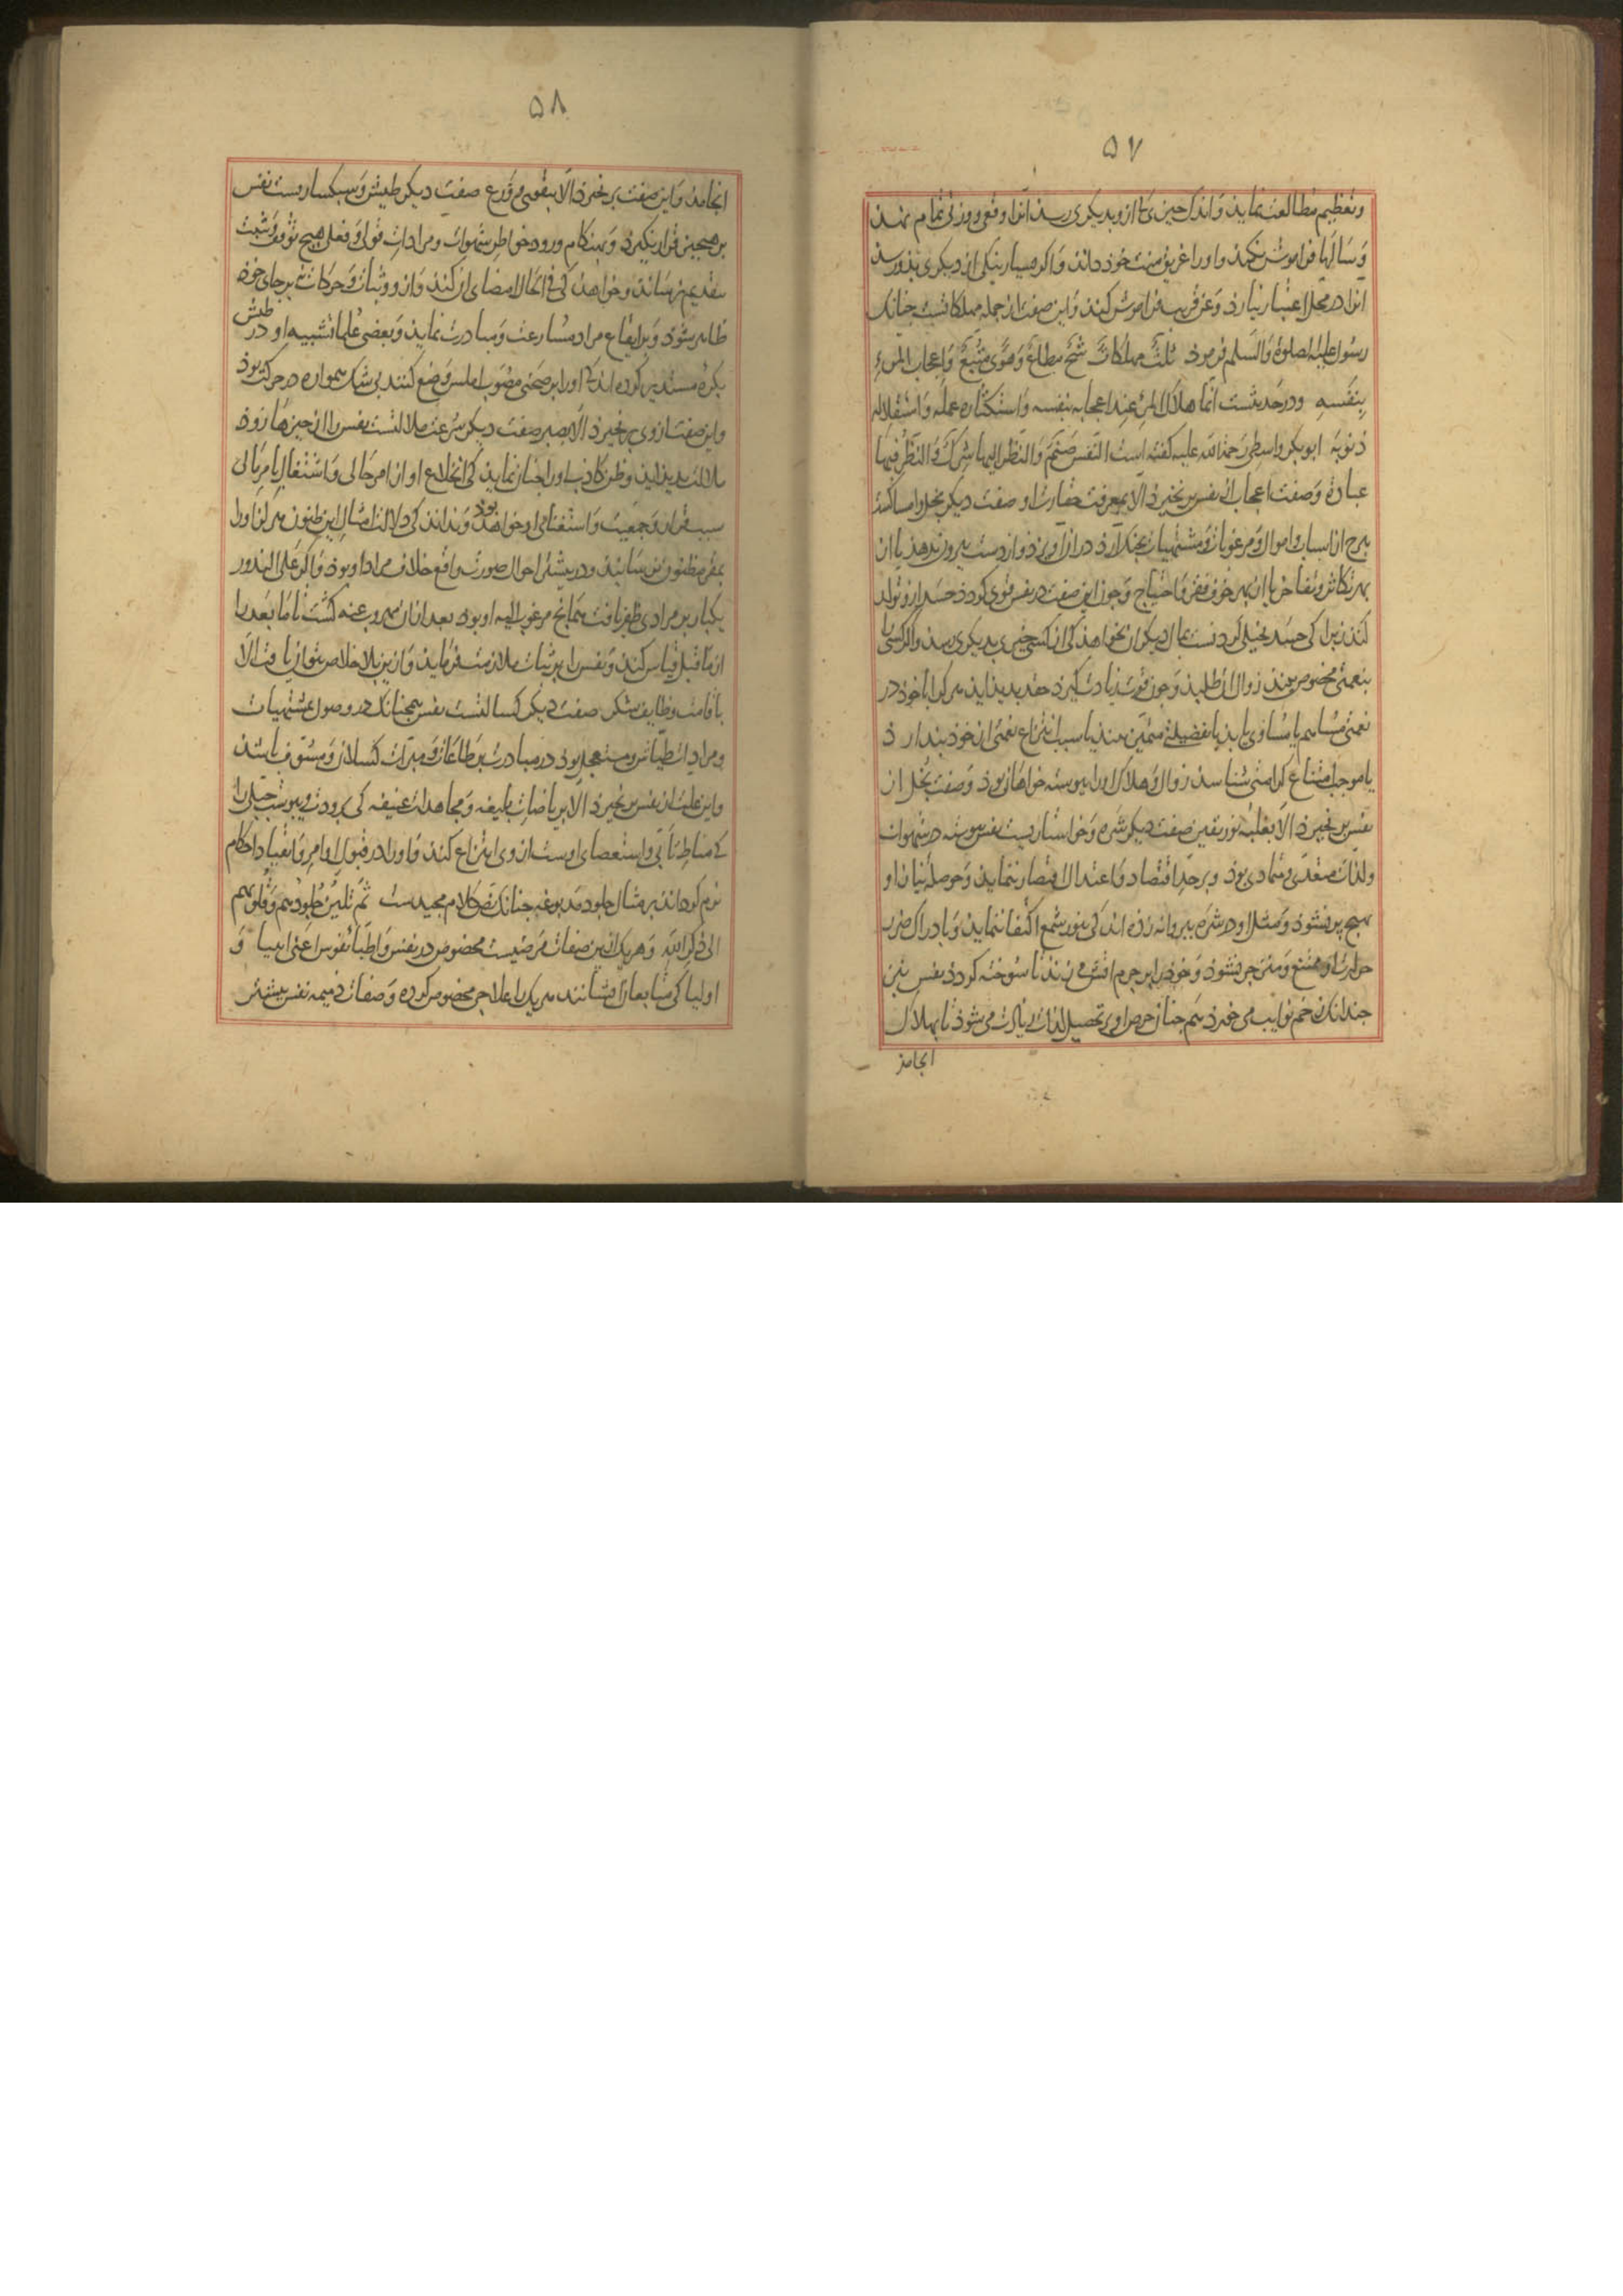 ۵۷
وتعظیم مطالعت نماید و اندک چیزی کی ازو بدیکری رسد انرا وقعی و وزنی تمام نهد
و سالها فراموش نکند و اورا غریق منت خود داند و اکر بسیار نیکی از دیکری بذو رسد
انرا در محل اعتبار نیارذ و عن قریب فراموش کند و این صفت از جمله مهلکاتست جنانک
رسول علیه الصلوة والسلم فرموذ ثلث مهلکات شح مطاع وهوی متبع واعجاب المرء
بنفسه ودر حدیثست انما هلاک المرء عند اعجابه بنفسه واستکثاره عمله واستقلاله
ذنوبه ابو بکر واسطی رحمة الله علیه کفته است النفس صنم والنظر الیها شرک والنظر فیها
عبادة وصفت اعجاب از نفس بر نخیزد الا بمعرفت حقارت او صفت دیکر بخل و امساکست
هرچ از اسباب و اموال و مرغوبات و مشتهیات بجنک ارذ دراز اویزذ و از دست بیرون ندهد یا از
بهر تکاثر و تفاخر یا از بهر خوف فقر و احتیاج و جون این صفت در نفس قوی کردد حسد ازو تولد
کند زیرا کی حسد بخیلی کردنست بمال دیکران نخواهذ کی از کسی چیزی بدیکری رسد و اکر کسی را
بنعمتی مخصوص بیند زوال ان طلبد و جون قوت زیادت کیرد حقد بدید اید هر کرا با خوذ در
نعمتی مساهم یا مساوی یابد یا بفضیلتی متمیز بیند یا سبب انتزاع نعمتی از خوذ بندارذ
یا موجب امتناع کرامتی شناسد زوال و هلاک اورا بیوسته خواهان بوذ و صفت بخل از
نفس بر نخیزد الا بغلبه نور یقین صفت دیکر شره و خواستاریست نفس بیوسته در شهوات
ولذات متعدی و متمادی بوذ و بر حد اقتصاد و اعتدال اقتصار ننماید و حوصله نیاز او
هیچ پر نشوذ و مثل او در شره بپروانه زذه اند کی بنور شمع اکتفا ننماید و بادراک ضرر
حرارت او ممتنع و منزجر نشوذ و خوذ را بر جرم اتش می زند تا سوخته کردذ نفس نیز
جندانک زخم نوایب می خورد هم جنان حرص او بر تحصیل لذات زیادت می شوذ تا بهلاک
انجامذ
۵۸
انجامذ و این صفت بر نخیزذ الا بتقوی و ورع صفت دیکر طیش و سبکساریست نفس
بر هیچ چیز قرار نکیرد و بهنکام ورود خواطر شهوات و مرادات قولی و فعلی هیچ توقف و تثبت
بتقدیم نرساند و خواهد کی فی الحال امضای ان کند و ازو و ثبات و حرکات نه بر جای خوذ
ظاهر شوذ و بر ایقاع مراد مسارعت و مبادرت نماید و بعضی علما تشبیه او در طیش
بکره مستدیر کرده اند کی اورا بر صحنی مصوب املس وضع کنند بی شک همواره در حرکت بوذ
و این صفت از وی بر نخیزد الا بصبر صفت دیکر سرعت ملالتست نفس را از چیزها زوذ
ملالت بدید اید و ظن کاذب اورا جنان نماید کی انخلاع او از امر حالی و اشتغال بامر تالی
سبب قرار و جمعیت و استغنای او خواهد بوذ و نداند کی دلالت امثال این ظنون هرکز اورا
بمقر مظنون نرساند و در بیشتر احوال صورت واقع خلاف مراد او بوذ و اکر علی الندور
یکبار بر مرادی ظفر یافت همانج مرغوب الیه او بوذ بعد از ان مهروب عنه کشت تا ما بعد را
از ما قبل قیاس کند و نفس را بر ثبات ملازمت فرماید و ازین بلا خلاص نتوان یافت الا
باقامت وظایف شکر صفت دیکر کسالتست نفس همچنانک در وصول بمشتهیات
و مرادات طیاش و مستعجل بوذ در مبادرت بر طاعات و مبرات کسلان و مسوف باشد
و این علت از نفس بر نخیزد الا بریاضات بلیغه و مجاهدات عنیفه کی برودت و یبوست جبلی را
کی مناط تابی و استعصای اوست از وی انتزاع کند و اورا در قبول اوامر و انقیاد احکام
نرم کرداند بر مثال جلود مدبوغه جنانک نص کلام مجیدست ثم تلین جلودهم وقلوبهم
الی ذکر الله و هر یک ازین صفات مرضیست مخصوص در نفس و اطبا نفوس اعنی انبیا و
اولیا کی متابعان ایشانند هر یک را علاجی مخصوص کرده و صفات ذمیمه نفس بیشتر